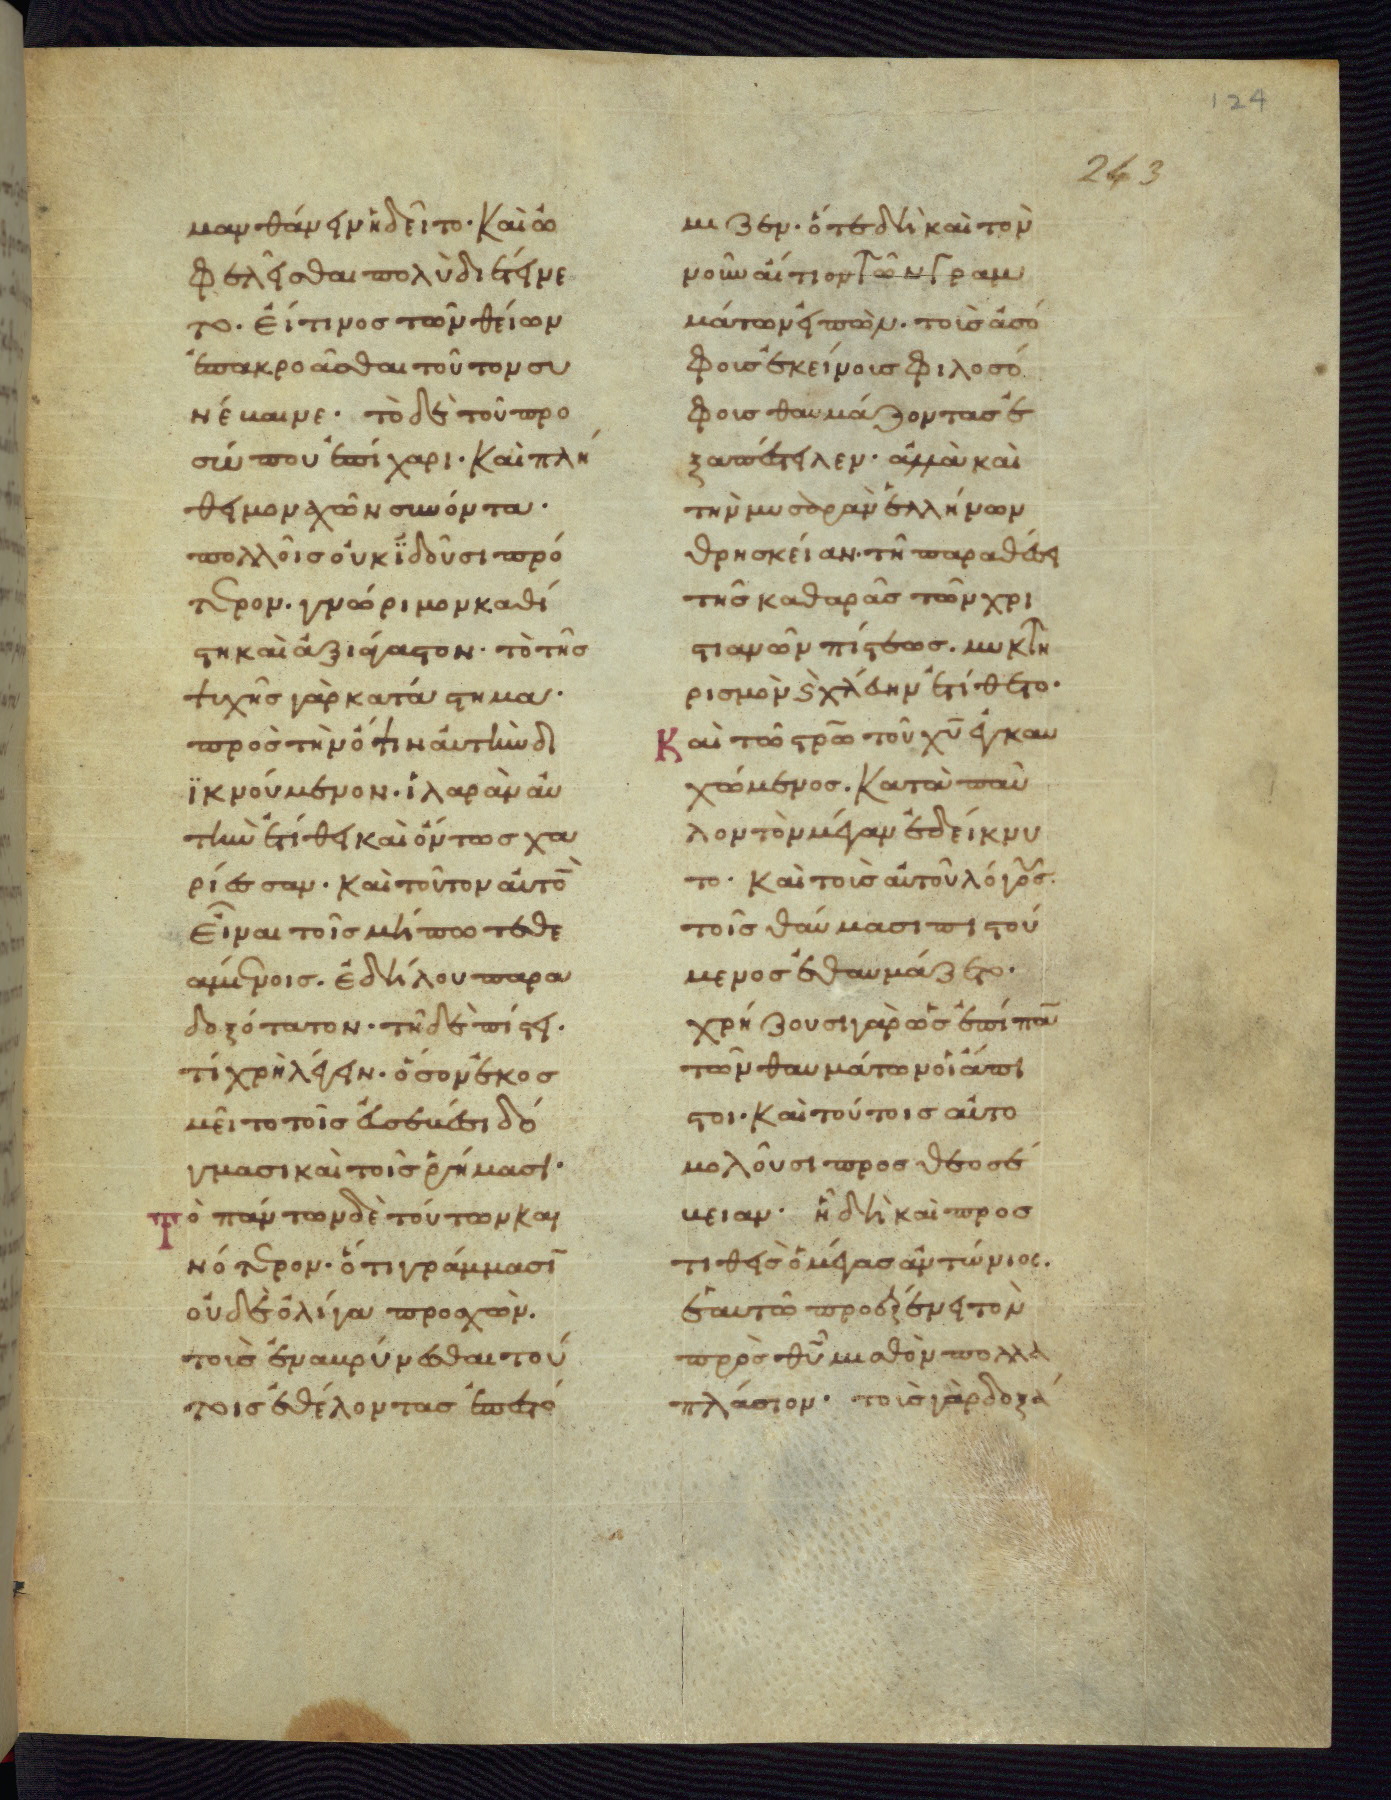 124
243
μανθάνειν ἡδεῖτο· καὶ ὠ
φελεῖσθαι πολὺ διετείνε
το. εἴ τινος τῶν θείων
ἐπακροᾶσθαι τοῦτον συ
νέβαινε· τὸ δὲ τοῦ προ
σώπου ἐπίχαρι· καὶ πλή
θει μοναχῶν συνόντα·
πολλοῖς οὐκ ἰδοῦσι πρό
τερον. γνώριμον καθί
στη καὶ ἀξιάγαστον· τὸ τῆς
ψυχῆς γὰρ κατάστημα·
πρὸς τὴν ὄψιν αὐτὴν δι
ϊκνούμενον· ἱλαρὰν αὐ
τὴν ἐτίθει καὶ ὄντως χα
ρίεσσαν· καὶ τοῦτον αὐτὸ̅
εἶναι τοῖς μήπω τεθε
αμένοις. ἐδήλου παρα
δοξότατον· τῇ δὲ πίστει.
τί χρὴ λέγειν· ὅσον ἐκοσ
μεῖτο τοῖς εὐσεβέσι δό
γμασι καὶ τοῖς ῥήμασι·
Τὸ πάντων δὲ τούτων και
νότερον. ὅτι γράμμασι̅
οὐδὲ ὀλίγα προσχὼν.
τοῖς ἐναβρύνεσθαι τού
τοις ἐθέλοντας ἐπεστό
μιζεν· ὅτε δὴ καὶ τὸν
νοῦν αἴτιον τῶν γραμ
μάτων εἰπὼν. τοῖς ἀσό
φοις ἐκείνοις φιλοσό
φοις θαυμάζοντας ἐ
ξαπέστειλεν· ἀλλὰ καὶ
τὴν μυσαρὰν ἑλλήνων
θρησκείαν· τῇ παραθέσει
τῆς καθαρᾶς τῶν χρι
στιανῶν πίστεως. μυκτη
ρισμὸν ϗ χλεύην ἐτίθετο·
Καὶ τῷ στρ̅ῶ τοῦ χ̅υ̅ ἐγκαυ
χώμενος. κατὰ παῦ
λον τὸν μέγαν ἐδείκνυ
το· καὶ τοῖς αὐτοῦ λόγοις.
τοῖς θαύμασι πιστού
μενος ἐθαυμάζετο·
χρήζουσι γὰρ ὡς ἐπίπα̅
τῶν θαυμάτων οἱ ἄπι
στοι· καὶ τούτοις αὐτο
μολοῦσι προς θεοσέ
βειαν· ἤδη καὶ προσ
τιθεὶς ὁ μέγας ἀντώνιος.
ἑαυτῶ προὐξένει τὸν
πρὸς θ̅υ̅ μισθὸν πολλα
πλάσιον· τοῖς γὰρ δοξά